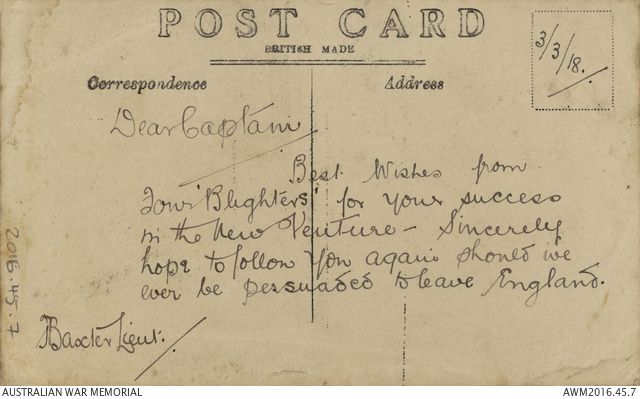 POST CARD
BRITISH MADE
Correspondence
Address
3/3/18.
Dear Captain
Best Wishes from
Four 'Blighters' for your success
in the New Venture – Sincerely
hope to follow you again should we
ever be persuaded to leave England.
Baxter Lieut.
2016.45.7
AUSTRALIAN WAR MEMORIAL
AWM2016.45.7